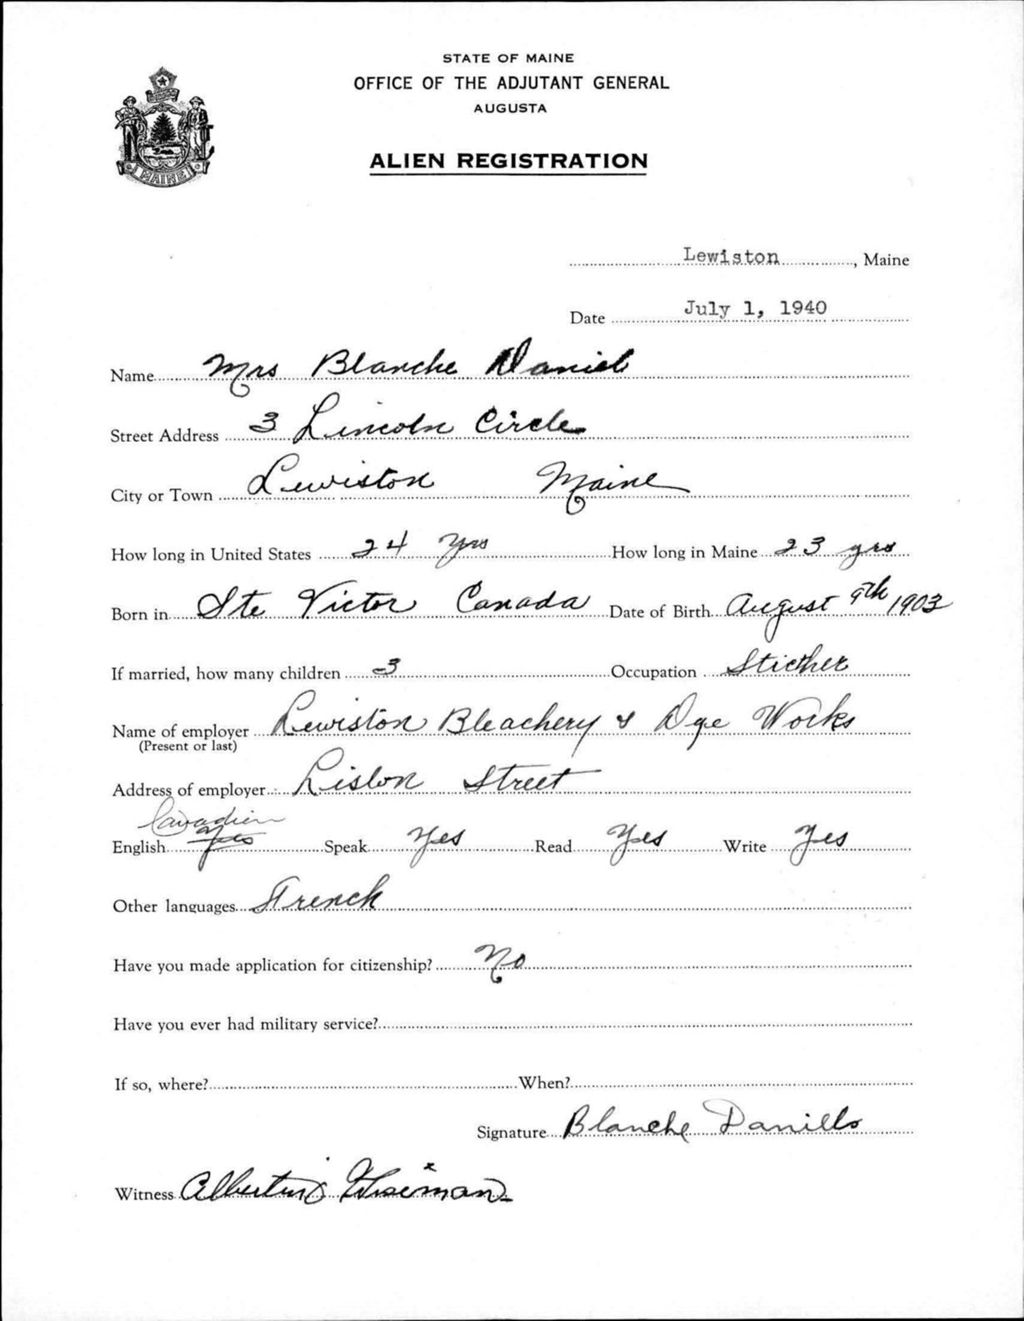 STATE OF MAINE
OFFICE OF THE ADJUTANT GENERAL
AUGUSTA
ALIEN REGISTRATION
MAINE
Lewiston, Maine
Date July 1, 1940
Name Mrs Blanche Daniels
Street Address 3 Lincoln Circle
City or Town Lewiston Maine
How long in United States 24 Yrs How long in Maine 23 yrs
Born in Ste Victor Canada Date of Birth August 9th 1903
If married, how many children 3 Occupation Sticher
Name of employer Lewiston Bleachery & Dye Works
(Present or last)
Address of employer Lisbon Street
Canadien
English Yes Speak Yes Read Yes Write Yes
Other languages French
Have you made application for citizenship? No
Have you ever had military service?
If so, where? When?
Signature Blanche Daniells
Witness